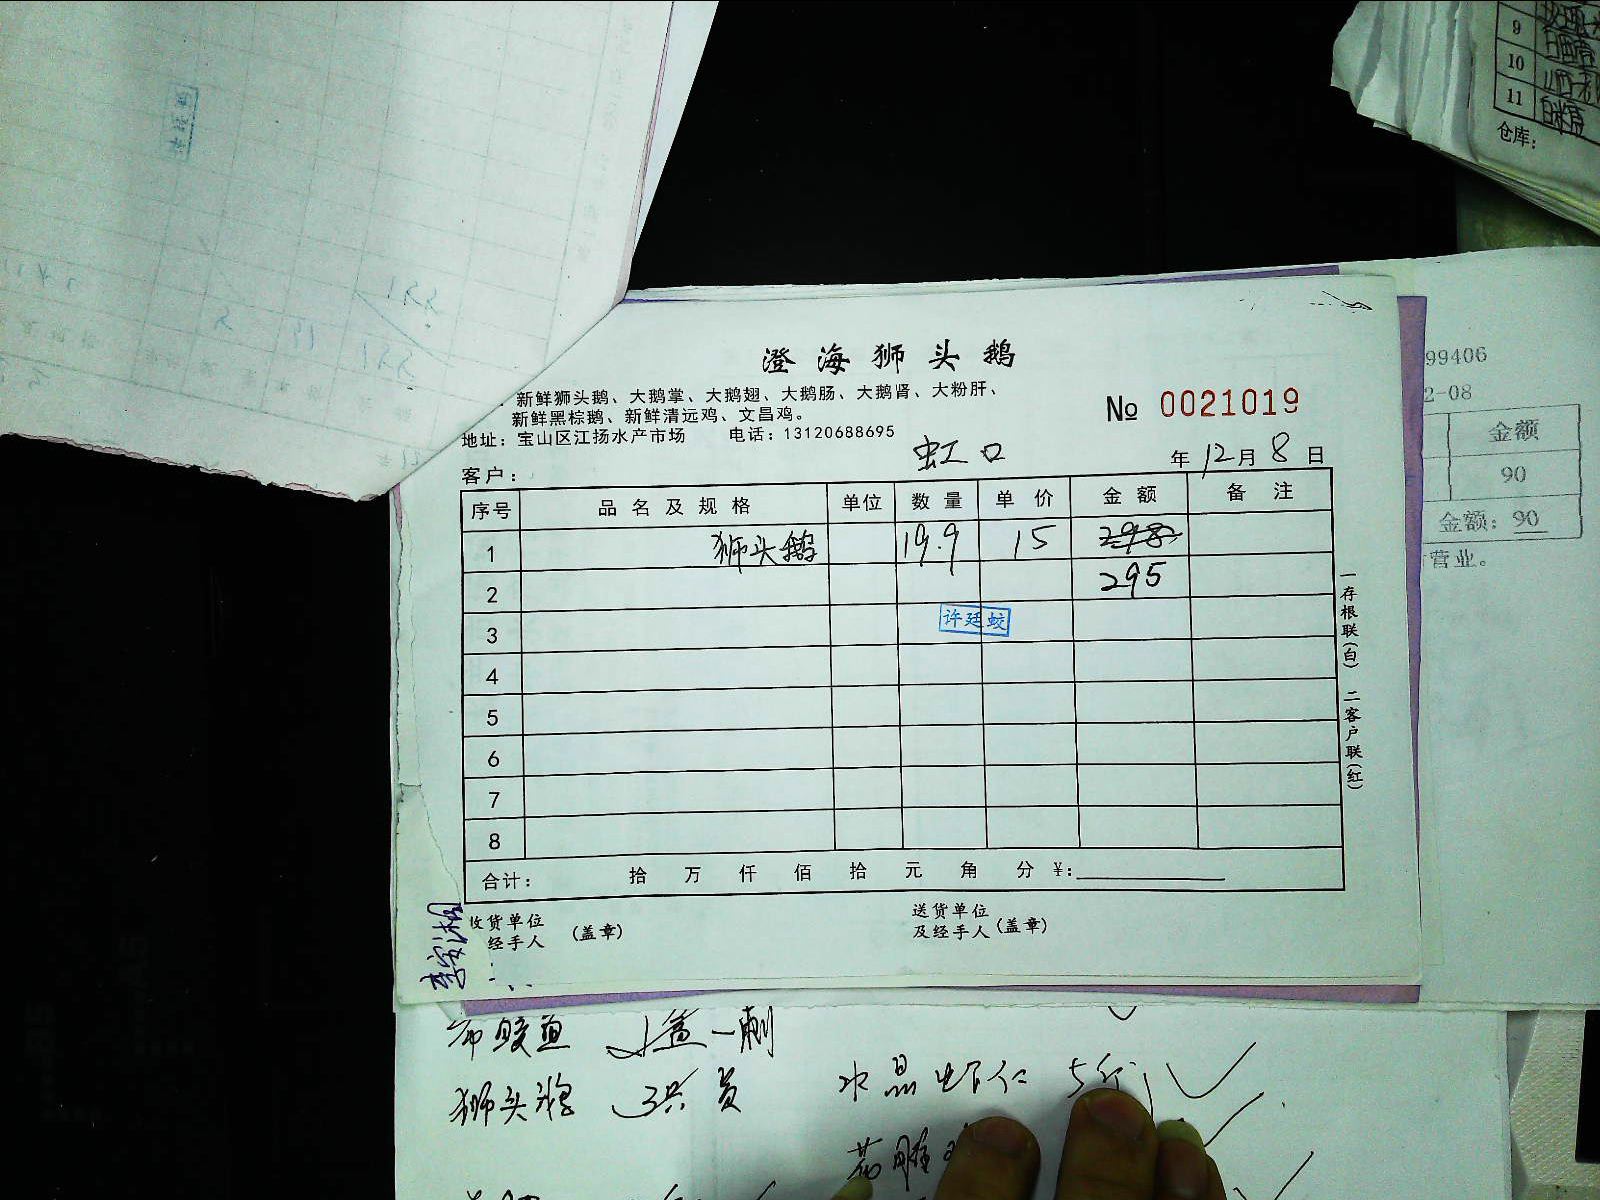 9
10
11
仓库：
澄海狮头鹅
新鲜狮头鹅、大鹅掌、大鹅翅、大鹅肠、大鹅肾、大粉肝、
新鲜黑棕鹅、新鲜清远鸡、文昌鸡。
地址：宝山区江扬水产市场 电话：13120688695
№ 0021019
客户： 虹口 年12月8日
序号 品名及规格 单位 数量 单价 金额 备注
1 狮头鹅 19.9 15 298
2 295
3 许廷蛟
4
5
6
7
8
合计： 拾 万 仟 佰 拾 元 角 分 ¥:
收货单位 经手人 （盖章）
送货单位 及经手人（盖章）
一存根联（白） 二客户联（红）
99406
2-08
金额
90
金额：90
营业。
狮头鹅 3只
水晶虾仁 5斤